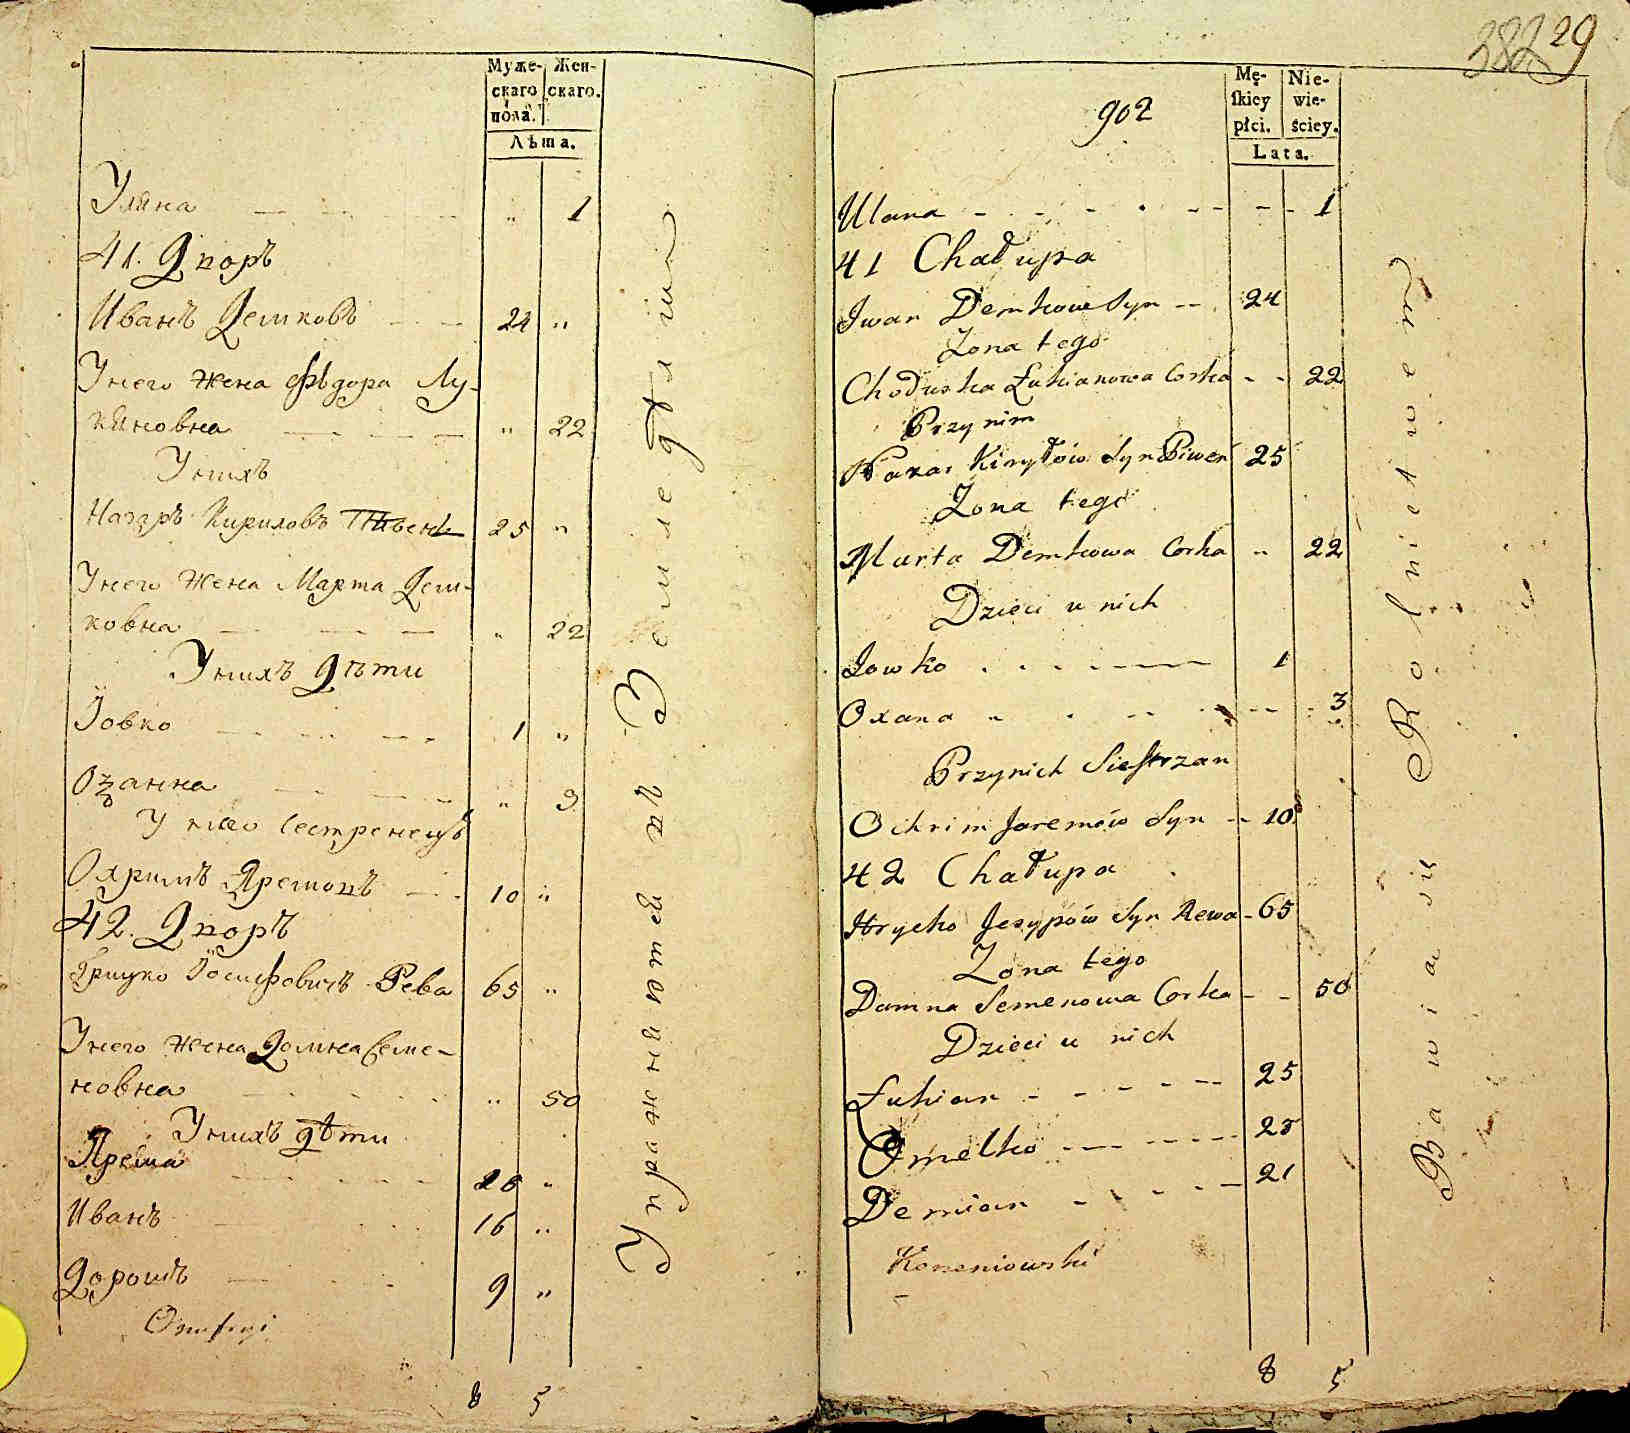 Муже- Жен-
скаго скаго.
пола.
Лѣта.
Уляна " 1
41. Дворъ
Иванъ Демковъ 24 "
Унего жена Фѣдора Лу-
кяновна " 22
Унихъ
Назаръ Кириловъ Пивень 25 "
Унего жена Марта Дем-
ковна " 22
Унихъ дѣти
Іовко 1 "
" 3
У него Сестренецъ
Охримъ Яремовъ 10 "
42. Дворъ
Грицко Іосифовичъ Рева 65 "
Унего жена Домна Семе-
новна " 50
Унихъ дѣти
Ярема "
Иванъ 16 "
Дорошъ 9 "
8 5
Упражняются въ Земледѣлии
382 29
902
Mę- Nie-
skiey wie-
płci. ściey.
Lata.
Ulana 1
41 Chałupa
Iwan Demkow Syn 24
Zona tego
Chodurka Łukianowa Corka 22
Przy nim
Nazar Kiryłów Syn Piweń 25
Zona tego
Marta Demkowa Corka " 22
Dzieci u nich
Jowko 1
Oxana 3
Przy nich Siestrzan
Ochrim Jaremów Syn 10
42 Chałupa
Hrycko Jesypów Syn Rewa 65
Zona tego
Domna Semenowa Corka 50
Dzieci u nich
Łukian 25
Omelko
Demian 21
Korzeniowski
8 5
Bawią się Rolnictwem